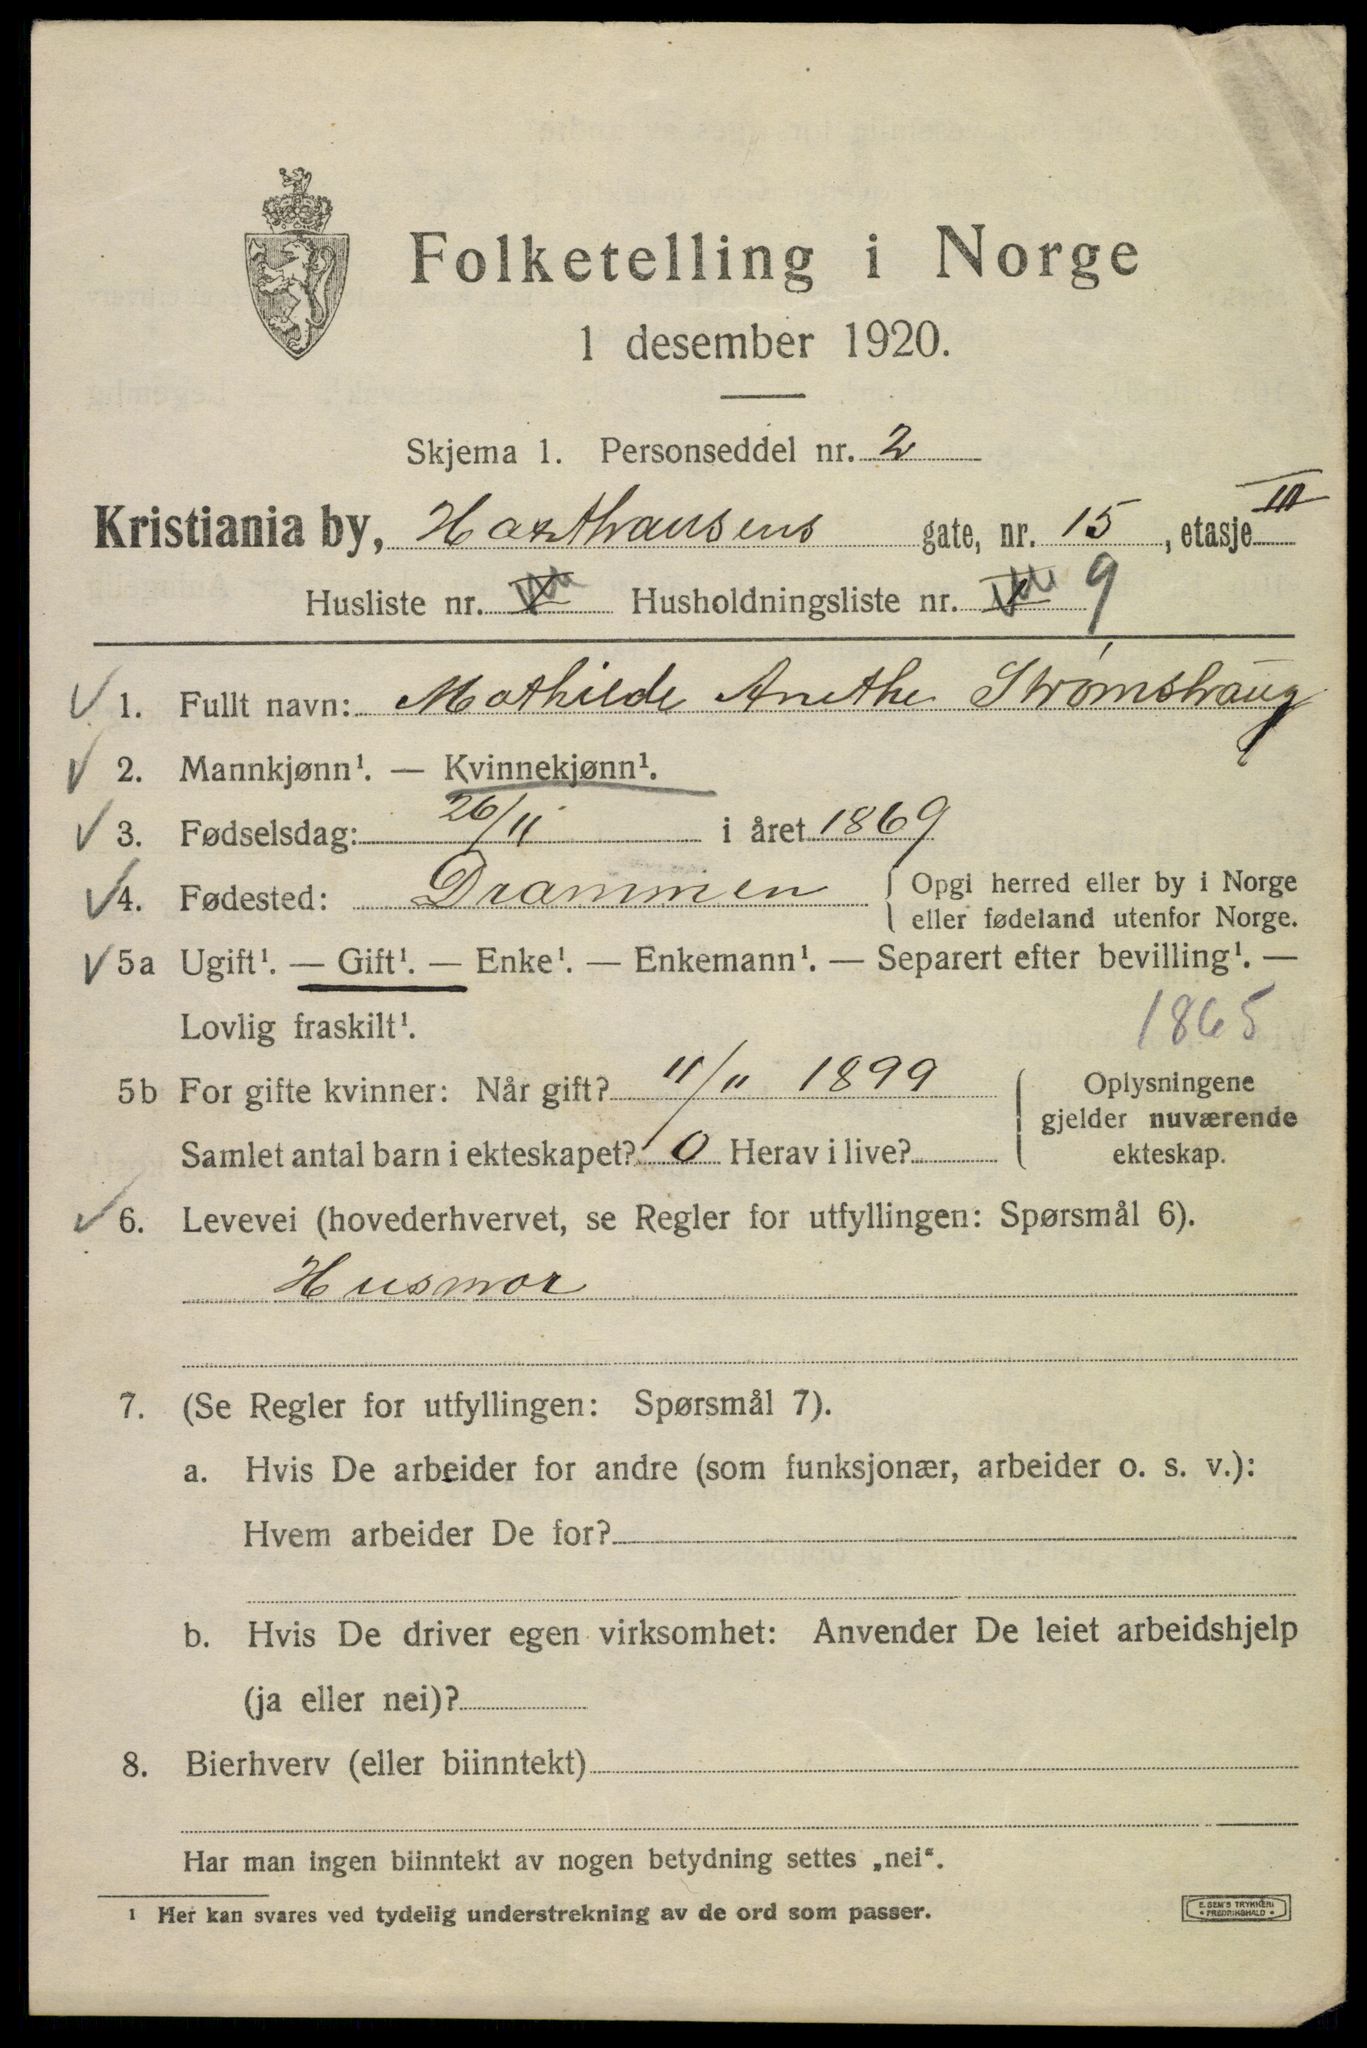 Folketelling i Norge
1 desember 1920.
Skjema 1. Personseddel nr. 2
Kristiania by, Haxthausens gate, nr. 15, etasje III
Husliste nr. Husholdningsliste nr. 9
1. Fullt navn: Mathilde Anethe Strømshaug
2. Mannkjønn¹. — Kvinnekjønn¹.
3. Fødselsdag: 26/11 i året 1869
4. Fødested: Drammen { Opgi herred eller by i Norge
eller fødeland utenfor Norge.
5a Ugift¹. — Gift¹. — Enke¹. — Enkemann¹. — Separert efter bevilling¹. —
Lovlig fraskilt¹.
1865
5b For gifte kvinner: Når gift? 11/11 1899
Samlet antal barn i ekteskapet? 0 Herav i live?
Oplysningene
gjelder nuværende
ekteskap.
6. Levevei (hovederhvervet, se Regler for utfyllingen: Spørsmål 6).
Husmor
7. (Se Regler for utfyllingen: Spørsmål 7).
a. Hvis De arbeider for andre (som funksjonær, arbeider o. s. v.):
Hvem arbeider De for?
b. Hvis De driver egen virksomhet: Anvender De leiet arbeidshjelp
(ja eller nei)?
8. Bierhverv (eller biinntekt)
Har man ingen biinntekt av nogen betydning settes „nei“.
¹ Her kan svares ved tydelig understrekning av de ord som passer.
E. SEM'S TRYKKERI
• FREDRIKSHALD •